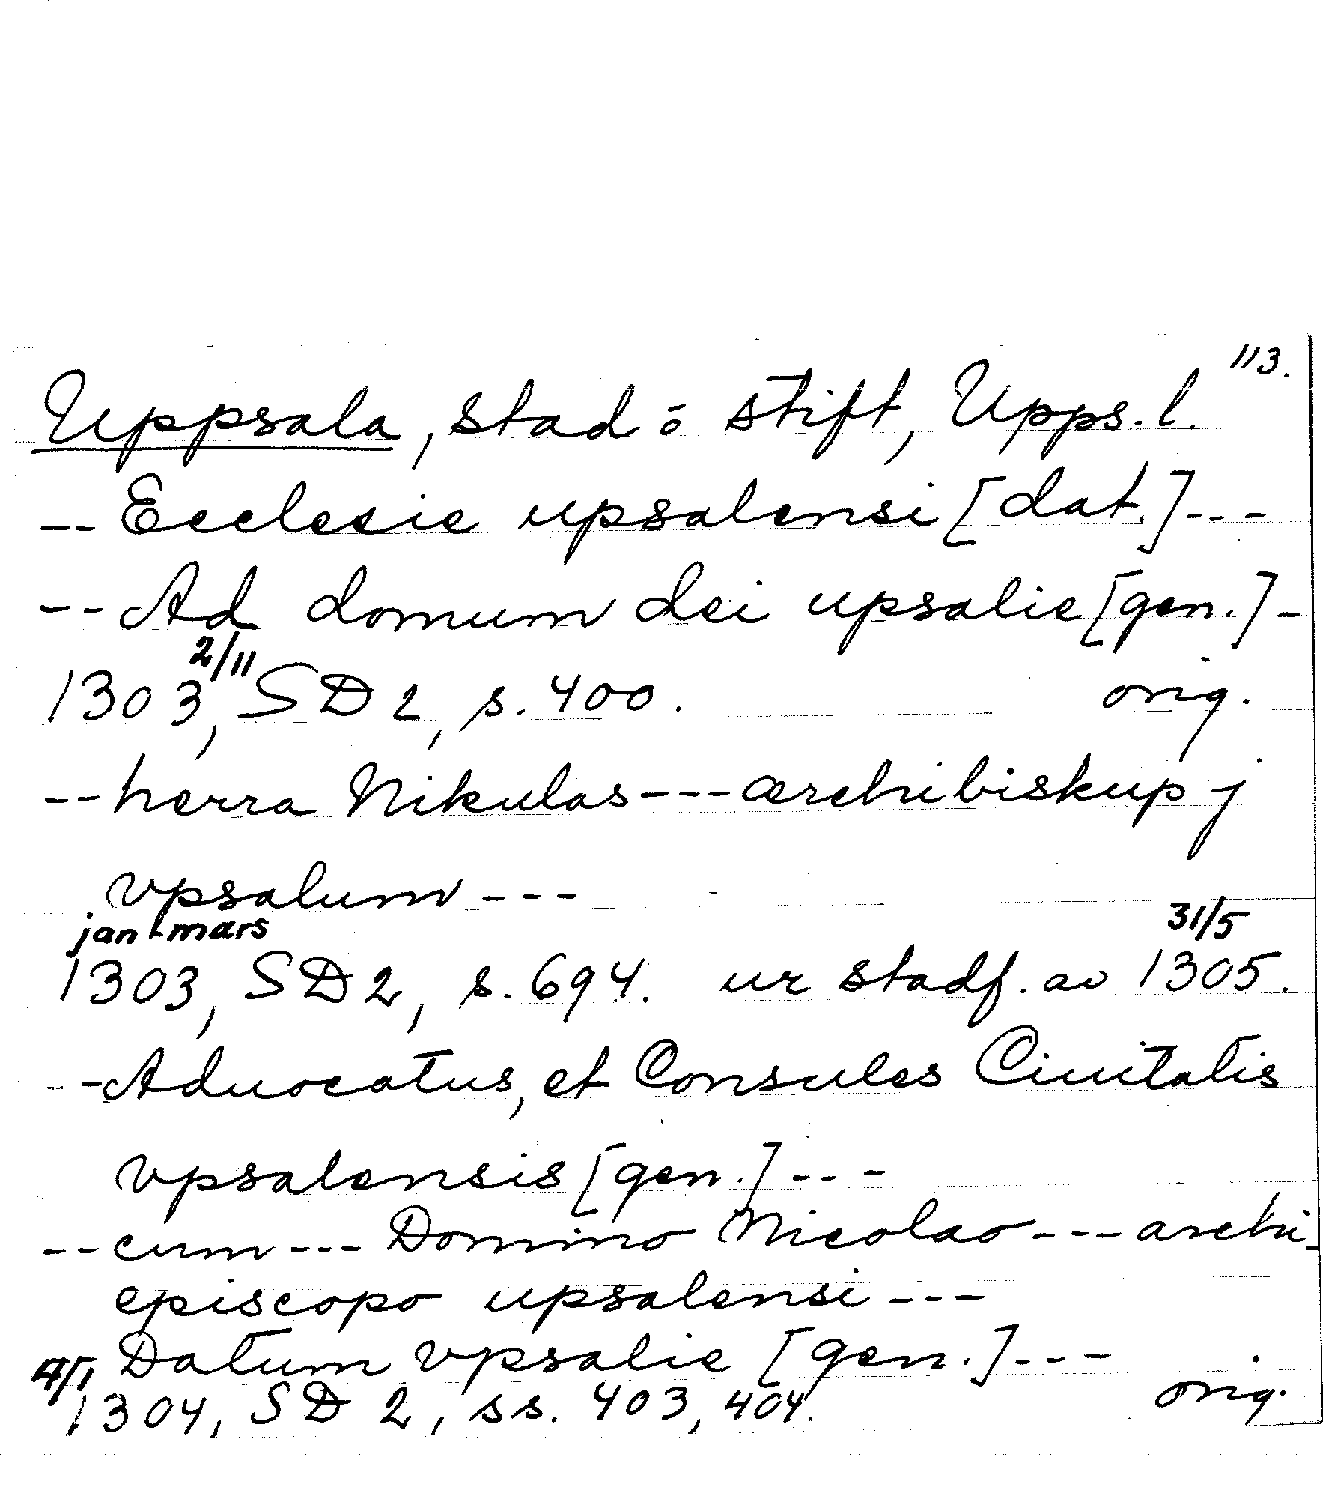 113.
Uppsala, stad o stift, Upps. l.
-- Ecclesie upsalensi [dat.] ---
-- Ad domum dei upsalie [gen.] -
2/11
1303, SD 2, s. 400. orig.
-- herra Nikulas --- ærchibiskup j
vpsalum ---
jan-mars 31/5
1303, SD 2, s. 694. ur stadf. av 1305.
-- Aduocatus, et Consules Ciuitatis
vpsalensis [gen.] ---
-- cum --- Domino Nicolao --- archi-
episcopo upsalensi ---
Datum vpsalie [gen.] ---
4/1 1304, SD 2, ss. 403, 404. orig.